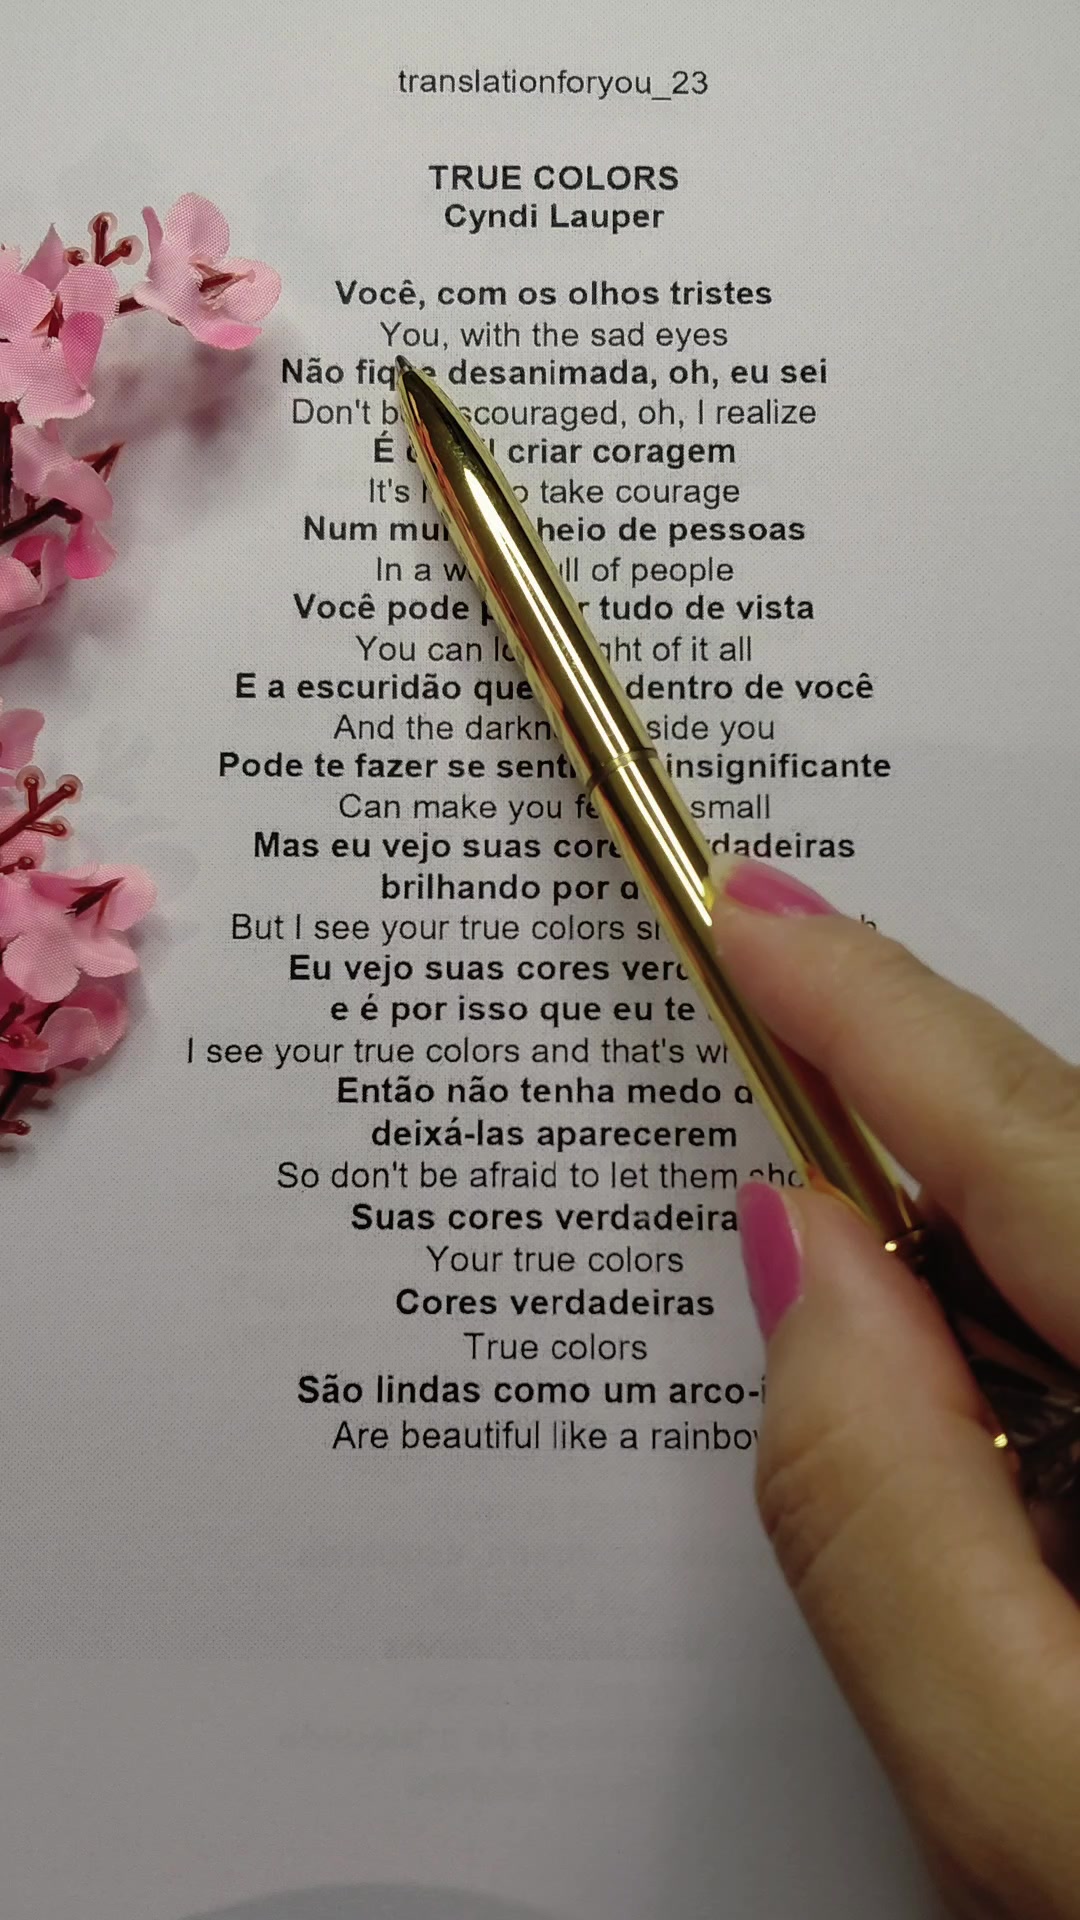 translationforyou_23
TRUE COLORS
Cyndi Lauper
Você, com os olhos tristes
You, with the sad eyes
Não fique desanimada, oh, eu sei
Don't oh, I realize
É criar coragem
It's take courage
Num heio de pessoas
In a of people
Você pode tudo de vista
You can of it all
E a escuridão que dentro de você
And the side you
Pode te fazer se insignificante
Can make you small
Mas eu vejo suas
brilhando por
But I see your true colors
Eu vejo suas cores
e é por isso que eu te
I see your true colors and that's
Então não tenha medo
deixá-las aparecerem
So don't be afraid to let them
Suas cores
Your true colors
Cores verdadeiras
True colors
São lindas como um
Are beautiful like a